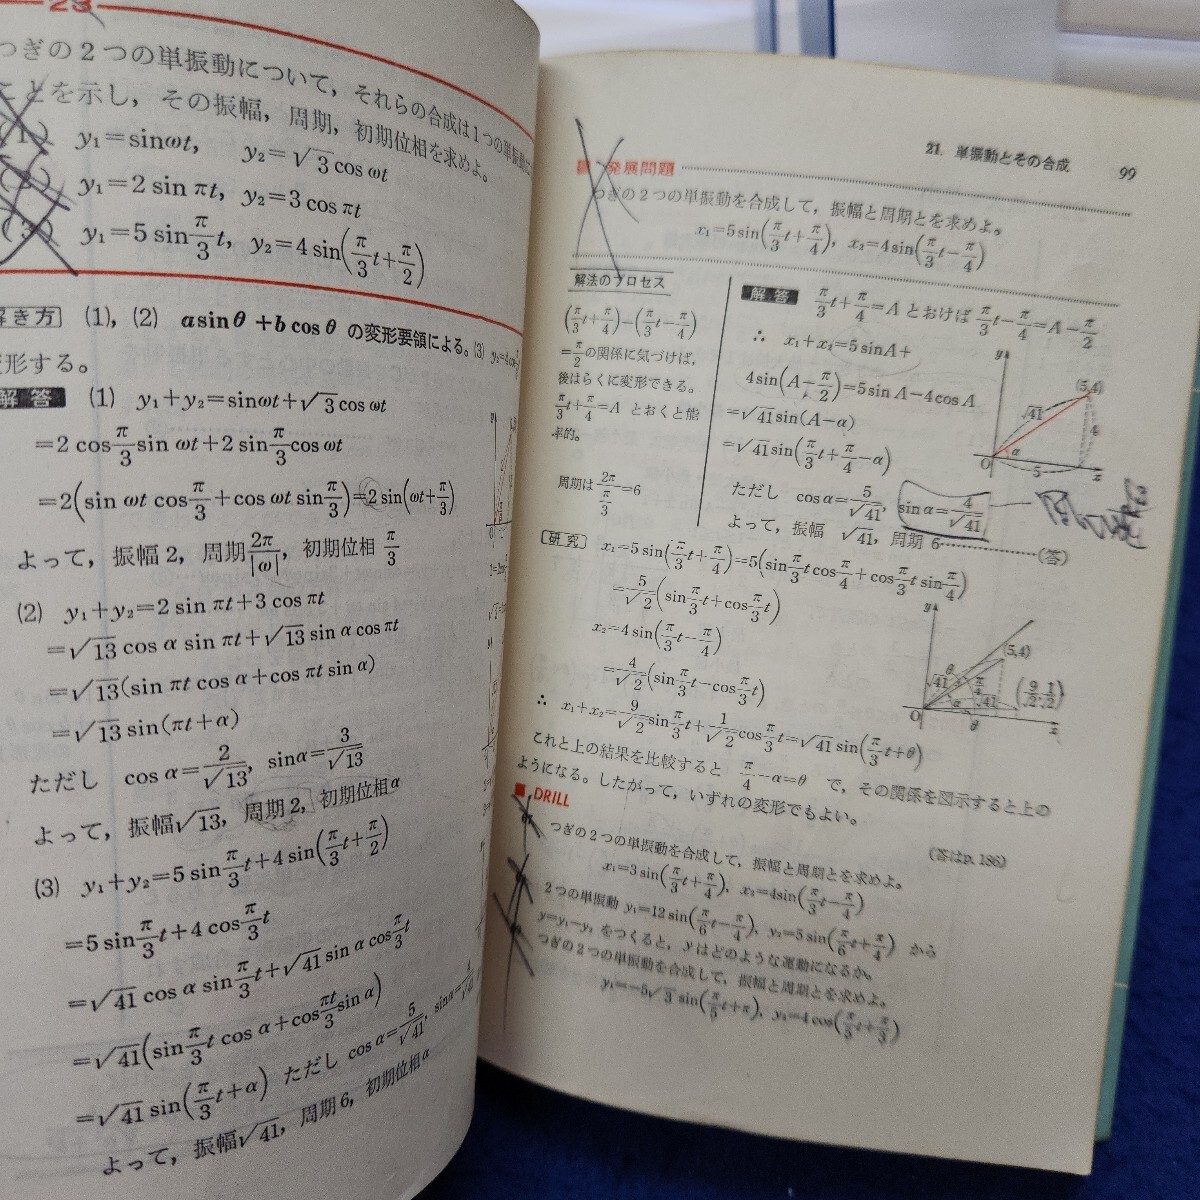 23
つぎの2つの単振動について,それらの合成は1つの単振動に
ことを示し,その振幅,周期,初期位相を求めよ。
(1) y₁=sinωt, y₂=√3cosωt
(2) y₁=2sinπt, y₂=3cosπt
(3) y₁=5sin(π/3)t, y₂=4sin(π/3 t+π/2)
解き方 (1), (2) asinθ+bcosθ の変形要領による。(3)
変形する。
解答 (1) y₁+y₂=sinωt+√3cosωt
=2cos(π/3)sinωt+2sin(π/3)cosωt
=2(sinωt cos π/3+cosωt sin π/3)=2sin(ωt+π/3)
よって,振幅2,周期2π/|ω|,初期位相 π/3
(2) y₁+y₂=2sinπt+3cosπt
=√13 cosα sinπt+√13 sinα cosπt
=√13(sinπt cosα+cosπt sinα)
=√13 sin(πt+α)
ただし cosα=2/√13, sinα=3/√13
よって,振幅√13,周期2,初期位相α
(3) y₁+y₂=5sin(π/3)t+4sin(π/3 t+π/2)
=5sin(π/3)t+4cos(π/3)t
=√41 cosα sin(π/3)t+√41 sinα cos(π/3)t
=√41(sin(π/3)t cosα+cos(πt/3) sinα)
=√41 sin(π/3 t+α) ただし cosα=5/√41, sinα=4/√41
よって,振幅√41,周期6,初期位相α
21. 単振動とその合成 99
発展問題
つぎの2つの単振動を合成して,振幅と周期とを求めよ。
x₁=5sin(π/3 t+π/4), x₂=4sin(π/3 t−π/4)
解法のプロセス
(π/3 t+π/4)−(π/3 t−π/4)
=π/2の関係に気づけば,
後はらくに変形できる。
π/3 t+π/4=A とおくと能
率的。
周期は 2π/(π/3)=6
解答 π/3 t+π/4=A とおけば π/3 t−π/4=A−π/2
∴ x₁+x₂=5sinA+
4sin(A−π/2)=5sinA−4cosA
=√41sin(A−α)
=√41sin(π/3 t+π/4−α)
ただし cosα=5/√41, sinα=4/√41
よって,振幅 √41,周期 6…………(答)
y
(5,4)
√41
4
α
O
5
x
〔研究〕 x₁=5sin(π/3 t+π/4)=5(sin(π/3)t cos π/4+cos(π/3)t sin π/4)
=5/√2(sin(π/3)t+cos(π/3)t)
x₂=4sin(π/3 t−π/4)
=4/√2(sin(π/3)t−cos(π/3)t)
∴ x₁+x₂=9/√2 sin(π/3)t+1/√2 cos(π/3)t=√41 sin(π/3 t+θ)
y
(5,4)
(9/√2, 1/√2)
√41
θ
π/4
√41
α
O
θ
x
これと上の結果を比較すると π/4−α=θ で,その関係を図示すると上の
ようになる。したがって,いずれの変形でもよい。
DRILL
(答はp.186)
つぎの2つの単振動を合成して,振幅と周期とを求めよ。
x₁=3sin(π/3 t+π/4), x₂=4sin(π/3 t−π/4)
2つの単振動 y₁=12sin(π/6 t−π/4), y₂=5sin(π/6 t+π/4) から
y=y₁−y₂ をつくると,yはどのような運動になるか。
つぎの2つの単振動を合成して,振幅と周期とを求めよ。
y₁=−5√3 sin(π/5 t+π), y₂=4cos(π/5 t+π/3)